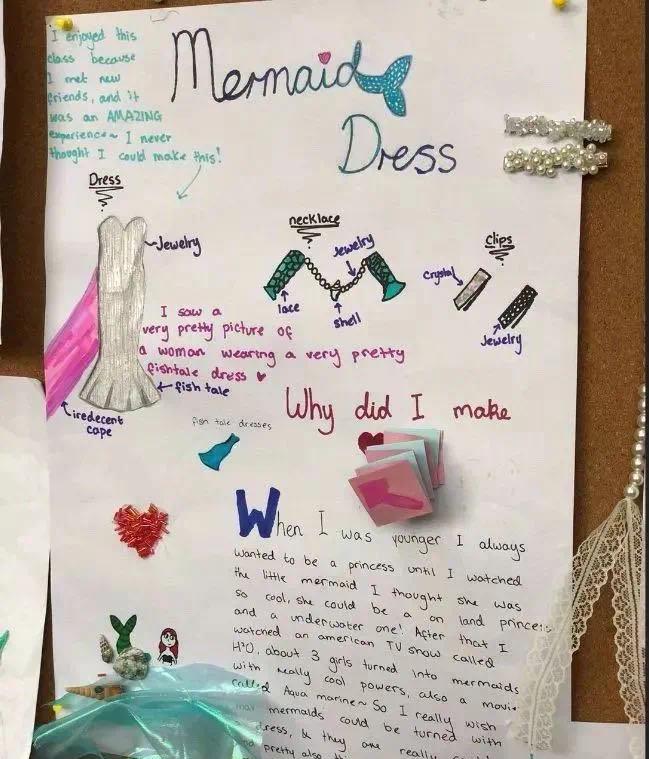 I enjoyed this
class because
I met new
friends, and it
was an AMAZING
experience~ I never
thought I could make this!
Mermaid
Dress
Dress
Jewelry
necklace
Jewelry
lace
shell
Clips
crystal
Jewelry
I saw a
very pretty picture of
a woman wearing a very pretty
fishtale dress ♥
fish tale
iredecent
cape
fish tale dresses
Why did I make
When I was younger I always
wanted to be a princess until I watched
the little mermaid I thought she was
so cool, she could be a on land princess
and a underwater one! After that I
watched an american TV show called
H²O, about 3 girls turned into mermaids
with really cool powers, also a movie
called Aqua marine~ So I really wish
mermaids could be turned with
dress, & they are really
pretty also